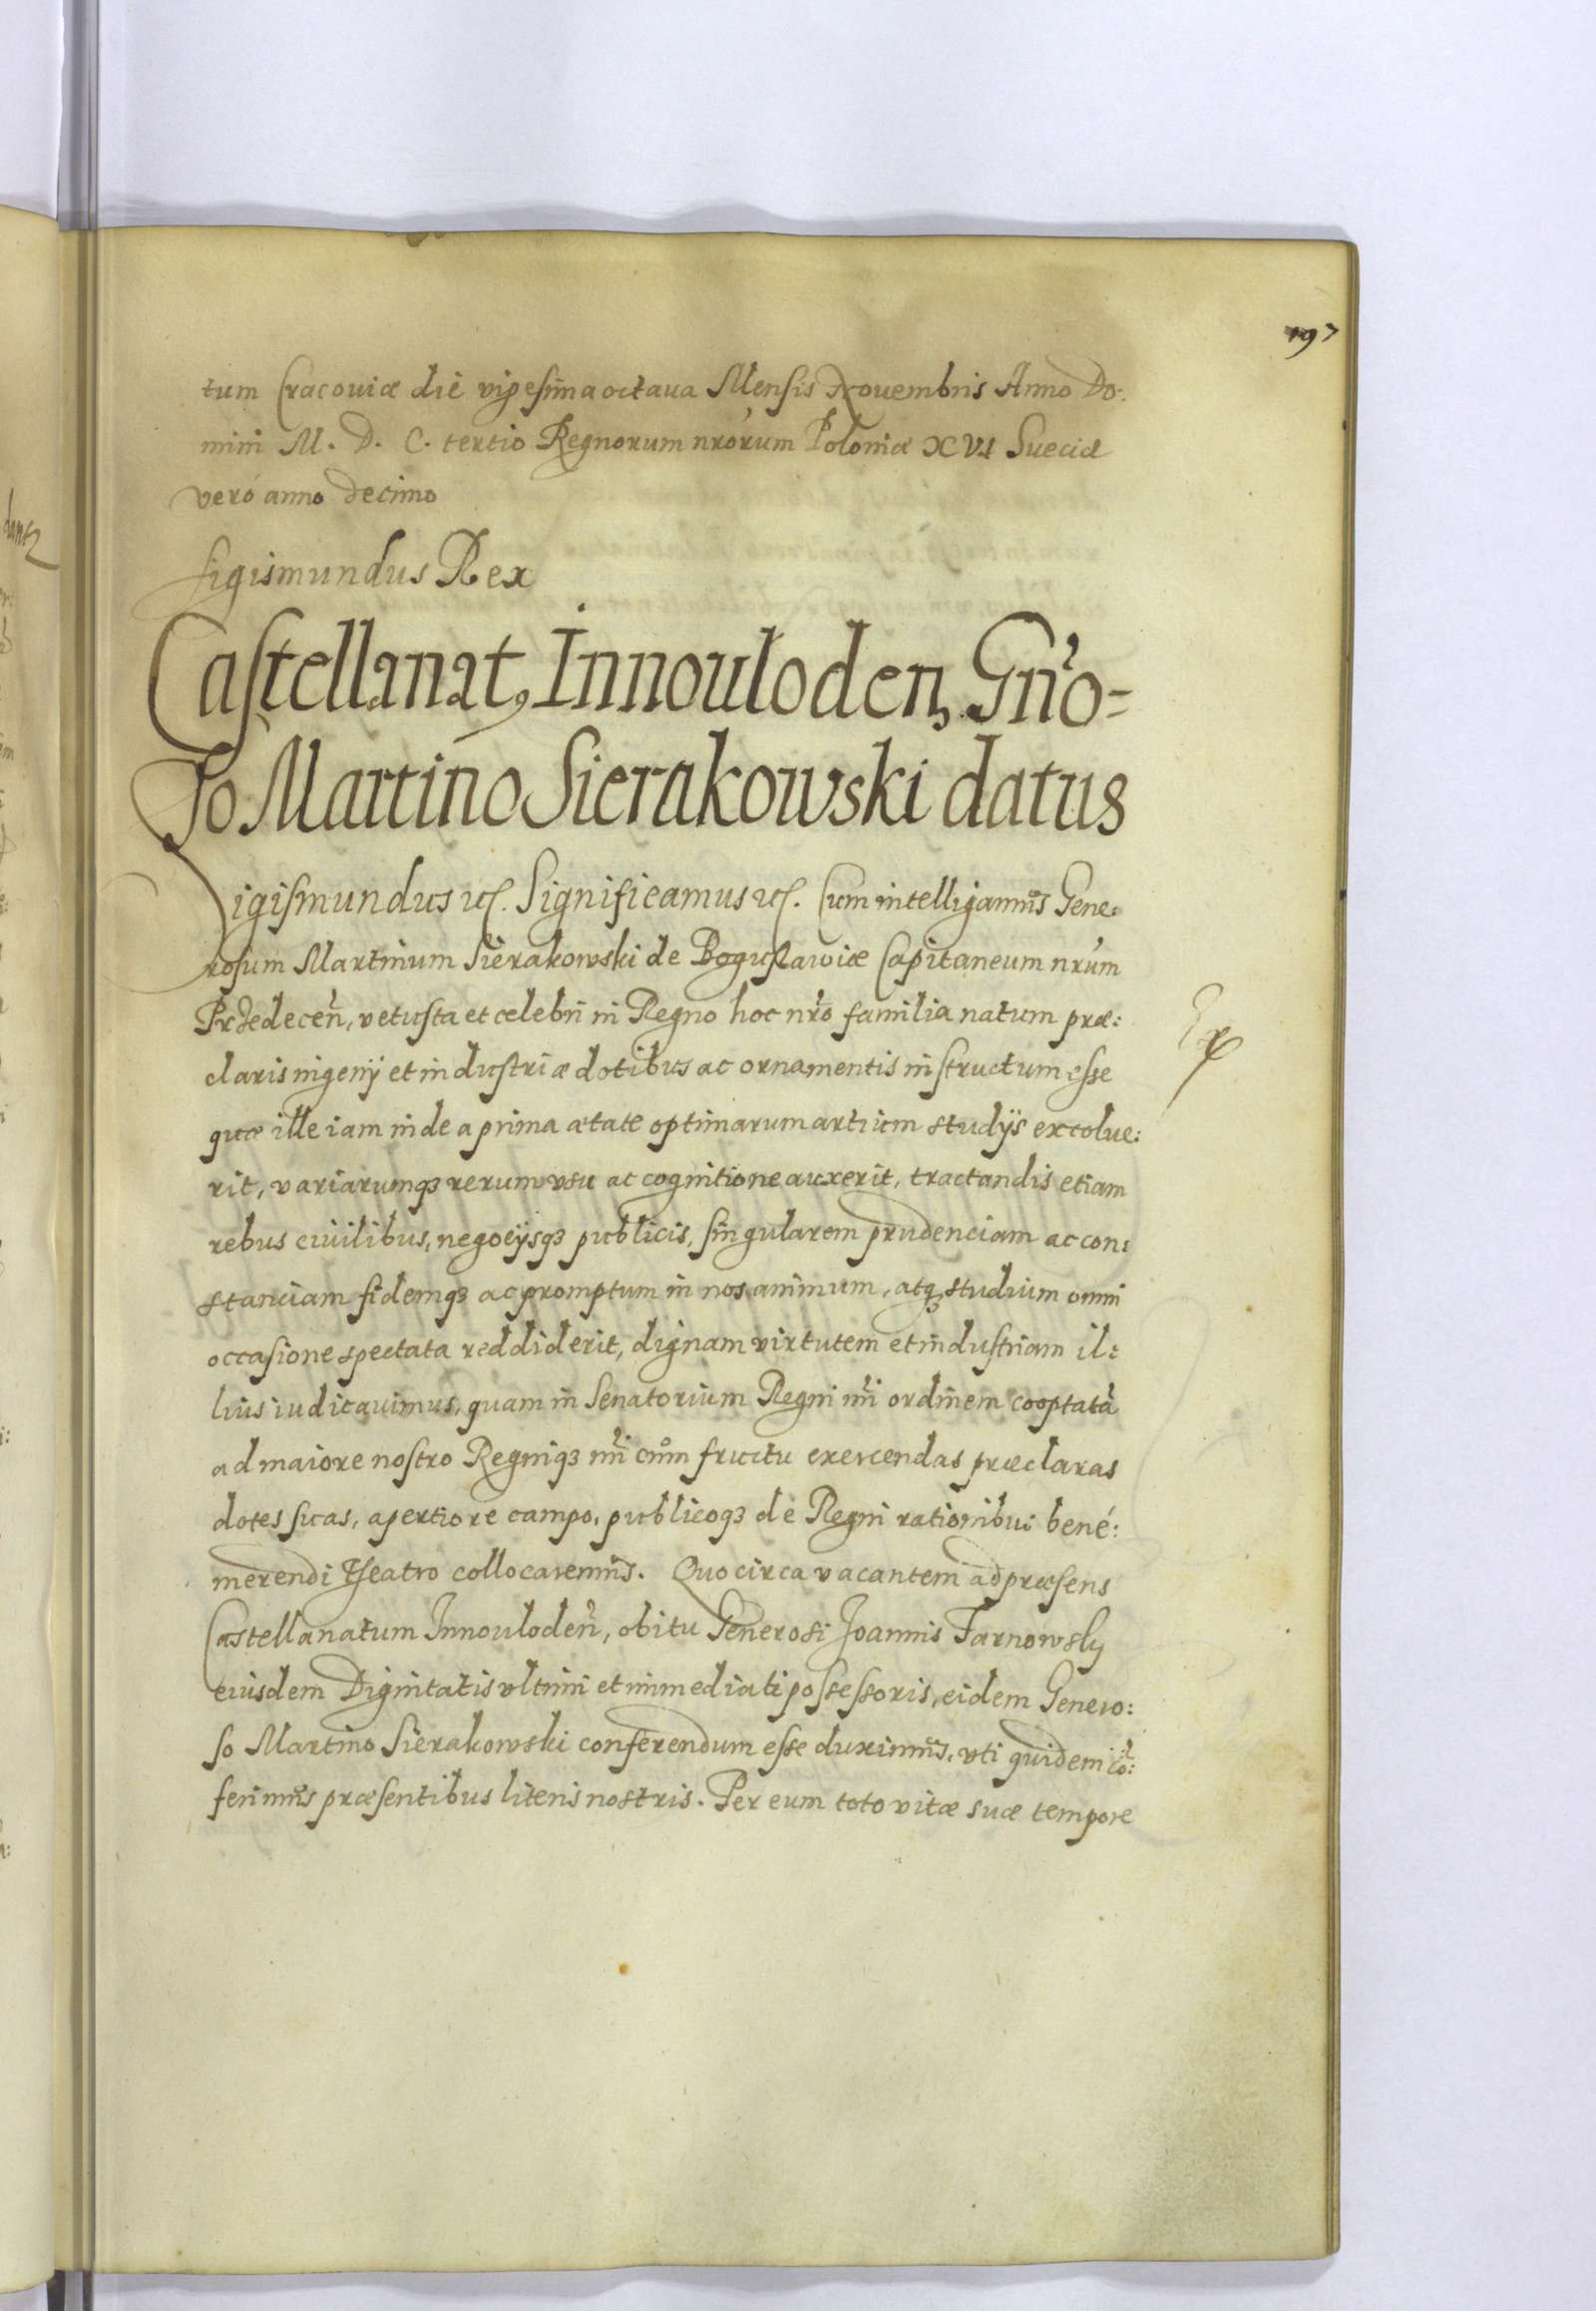 197
tum Cracouiæ die vigesima octaua Mensis Nouembris Anno Do:
mini M. D. C. tertio Regnorum nrorum Poloniæ XVI Sueciæ
veró anno decimo
Sigismundus Rex
Castellanat9 Innouloden Gnro=
so Martino Sierakowski datus
Sigismundus etc. Significamus etc. Cum intelligamus Gene:
rosum Martinum Sierakowski de Boguslawice Capitaneum nrum
Prædecen, vetusta et celebri in Regno hoc nro familia natum præ:
claris ingenij et industriæ dotibus ac ornamentis instructum esse
quæ ille iam inde a prima ætate optimarum artium studijs excolue:
rit, variarumq3 rerum vsu ac cognitione auxerit, tractandis etiam
rebus ciuilibus, negocijsq3 publicis, singularem prudenciam ac con:
stanciam fidemq3 ac promptum in nos animum, atq3 studium omni
occasione spectata reddiderit, dignam virtutem et industriam il:
lius iudicauimus, quam in Senatorium Regni nri ordinem cooptata
ad maiore nostro Regniq3 nri cum fructu exercendas præclaras
dotes suas, apertiore campo, publicoq3 de Regni rationibus bené:
merendi Theatro collocaremus. Quocirca vacantem ad præsens
Castellanatum Innouloden, obitu Generosi Joannis Tarnowsky
eiusdem Dignitatis vltimi et immediati possessoris, eidem Genero:
so Martino Sierakowski conferendum esse duximus, vti quidem co:
ferimus præsentibus literis nostris. Per eum toto vitæ suæ tempore